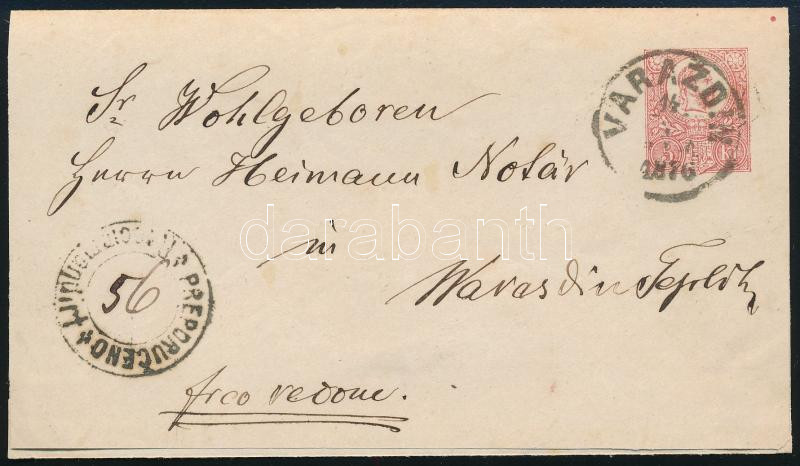 Sr Wohlgeboren
Herrn Heimann Notár
in
Warasdin Teplitz
frco recom.
VARAŽDIN
14
1876
5 Kr
PREPORUČENO
56
darabanth